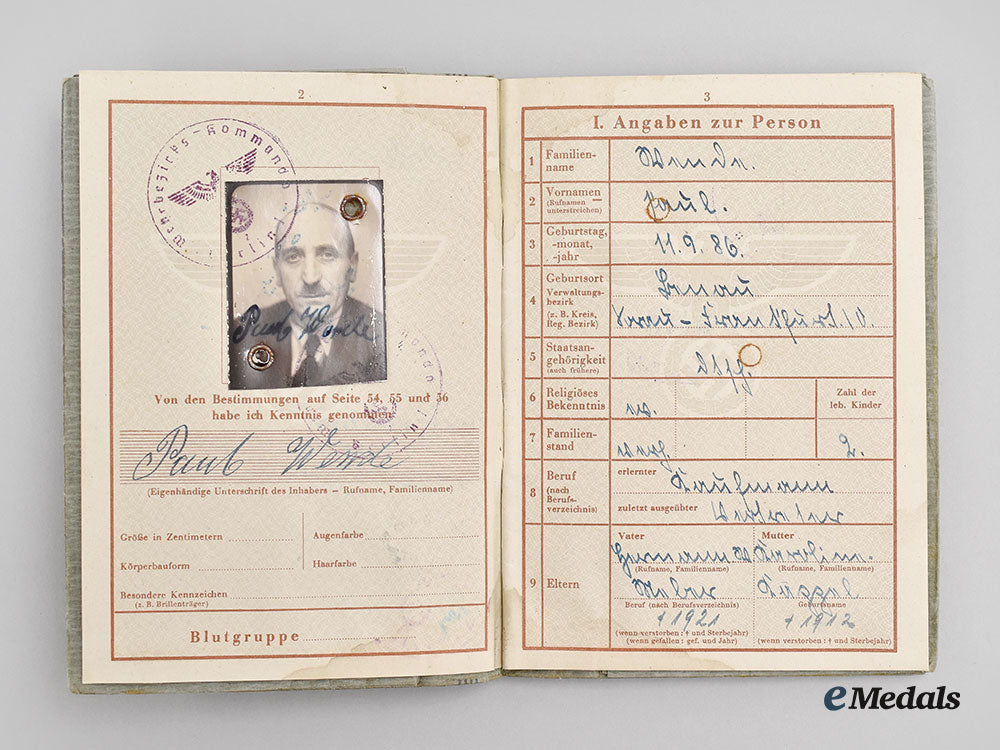 2
Wehrbezirks-Kommando
Berlin
Paul Wende
Von den Bestimmungen auf Seite 54, 55 und 56
habe ich Kenntnis genommen
Paul Wende
(Eigenhändige Unterschrift des Inhabers – Rufname, Familienname)
Größe in Zentimetern
Augenfarbe
Körperbauform
Haarfarbe
Besondere Kennzeichen
(z. B. Brillenträger)
Blutgruppe
3
I. Angaben zur Person
1 Familien-
name
Wende.
2 Vornamen
(Rufnamen —
unterstreichen)
Paul.
3 Geburtstag,
-monat,
-jahr
11.9.86.
4 Geburtsort
Verwaltungs-
bezirk
(z. B. Kreis,
Reg. Bezirk)
Sorau – Frankfurt/O.
5 Staatsan-
gehörigkeit
(auch frühere)
6 Religiöses
Bekenntnis
ev.
Zahl der
leb. Kinder
7 Familien-
stand
verh.
2.
8 Beruf
(nach
Berufs-
verzeichnis)
erlernter
Kaufmann
zuletzt ausgeübter
Vertreter
9 Eltern
Vater
Mutter
Hermann W. Karoline.
(Rufname, Familienname)
(Rufname, Familienname)
Weber
Beruf (nach Berufsverzeichnis)
Geburtsname
† 1921
† 1912
(wenn verstorben: † und Sterbejahr)
(wenn gefallen: gef. und Jahr)
(wenn verstorben: † und Sterbejahr)
eMedals